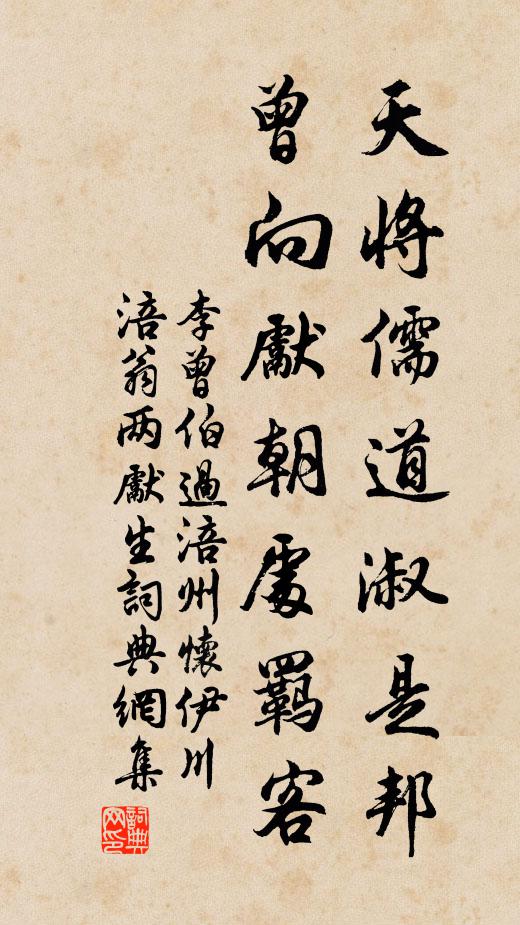 天將儒道淑是邦
曾向獻朝處羈客
李曾伯過涪州懷伊川
涪翁两獻生詞典網集
詞典网印